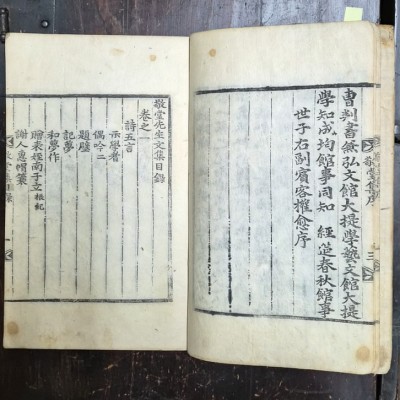 曹判書兼弘文館大提學藝文館大提
學知成均館事同知 經筵春秋館事
世子右副賓客權愈序
敬堂集序
三
敬堂先生文集目錄
卷之一
詩五言
示學者
偶吟二
題壁
記夢
和夢作
贈表姪南子立
謝人惠帽箋